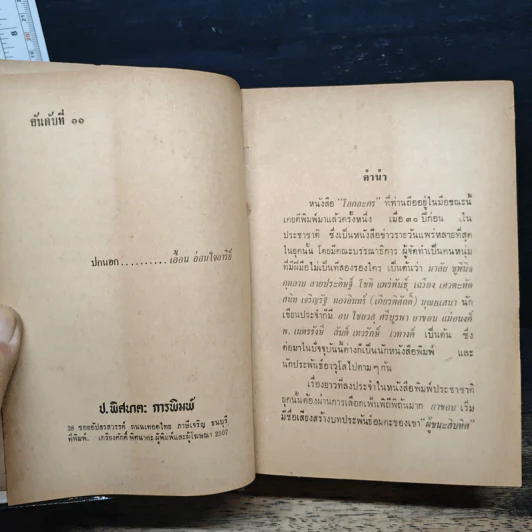 อันดับที่ ๑๑
ปกนอก..........เอื้อน อ่อนใจอารีย์
ป.พิศนาคะ การพิมพ์
38 ซอยอัปสรสวรรค์ ถนนเทอดไทย ภาษีเจริญ ธนบุรี
ที่พิมพ์. เกรียงศักดิ์ พิศนาคะ ผู้พิมพ์และผู้โฆษณา 2507
คำนำ
หนังสือ "โลกอะคร" ที่ท่านถืออยู่ในมือขณะนี้
เคยตีพิมพ์มาแล้วครั้งหนึ่ง เมื่อ ๓๐ ปีก่อน ใน
ประชาชาติ ซึ่งเป็นหนังสือข่าวรายวันแพร่หลายที่สุด
ในยุคนั้น โดยมีคณะบรรณาธิการ ผู้จัดทำเป็นคนหนุ่ม
ที่มีฝีมือไม่เป็นที่สองรองใคร เป็นต้นว่า มาลัย ชูพินิจ
กุหลาบ สายประดิษฐ์ โชติ แพร่พันธุ์ เฉวียง เศวตะทัต
สนิท เจริญรัฐ ทองอินทร์ (เถียรศักดิ์) บุณยเสนา นัก
เขียนประจำก็มี อบ ไชยวสุ ศรีบูรพา ยาขอบ แม่อนงค์
พ. เนตรรังษี สันต์ เทวรักษ์ เวทางค์ เป็นต้น ซึ่ง
ต่อมาในปัจจุบันนี้ต่างก็เป็นนักหนังสือพิมพ์ และ
นักประพันธ์อาวุโสไปตาม ๆ กัน
เรื่องยาวที่ลงประจำในหนังสือพิมพ์ประชาชาติ
ยุคนั้นต้องผ่านการเลือกเฟ้นพิถีพิถันมาก ยาขอบ เริ่ม
มีชื่อเสียงสร้างบทประพันธ์อมตะของเขา "ผู้ชนะสิบทิศ"